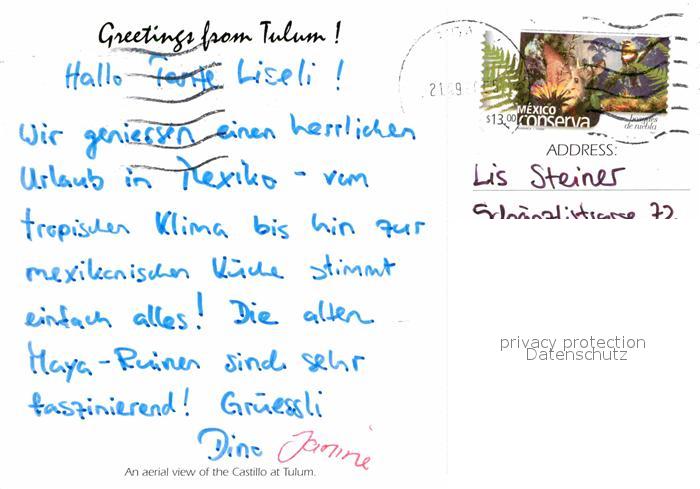 Greetings from Tulum !
Hallo Tante Liseli !
Wir geniessen einen herrlichen
Urlaub in Mexiko - vom
tropischen Klima bis hin zur
mexikanischen Küche stimmt
einfach alles! Die alten
Maya-Ruinen sind sehr
faszinierend! Grüessli
Dino Janine
An aerial view of the Castillo at Tulum.
MÉXICO
$13.00 conserva
bosques
de niebla
ADDRESS:
Lis Steiner
72
privacy protection
Datenschutz